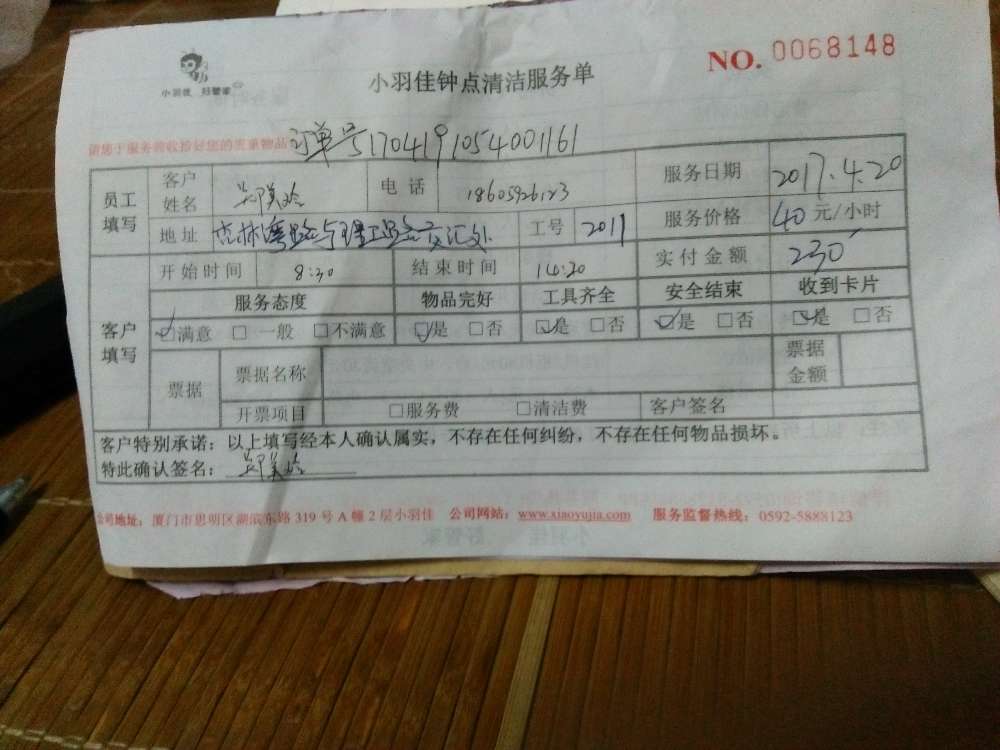 小羽佳 好管家
小羽佳钟点清洁服务单
NO. 0068148
请您于服务前收拾好您的贵重物品
订单号1704191054001161
员工填写
客户姓名
电话 18605926123
服务日期 2017.4.20
地址 杏林湾路与理工路交汇处
工号 2011
服务价格 40元/小时
客户填写
开始时间 8:30
结束时间 14:20
实付金额 230
服务态度 物品完好 工具齐全 安全结束 收到卡片
☑满意 □一般 □不满意 ☑是 □否 ☑是 □否 ☑是 □否 ☑是 □否
票据
票据名称
票据金额
开票项目 □服务费 □清洁费 客户签名
客户特别承诺：以上填写经本人确认属实，不存在任何纠纷，不存在任何物品损坏。
特此确认签名：
公司地址：厦门市思明区湖滨东路 319 号 A 幢 2 层小羽佳 公司网站：www.xiaoyujia.com 服务监督热线：0592-5888123